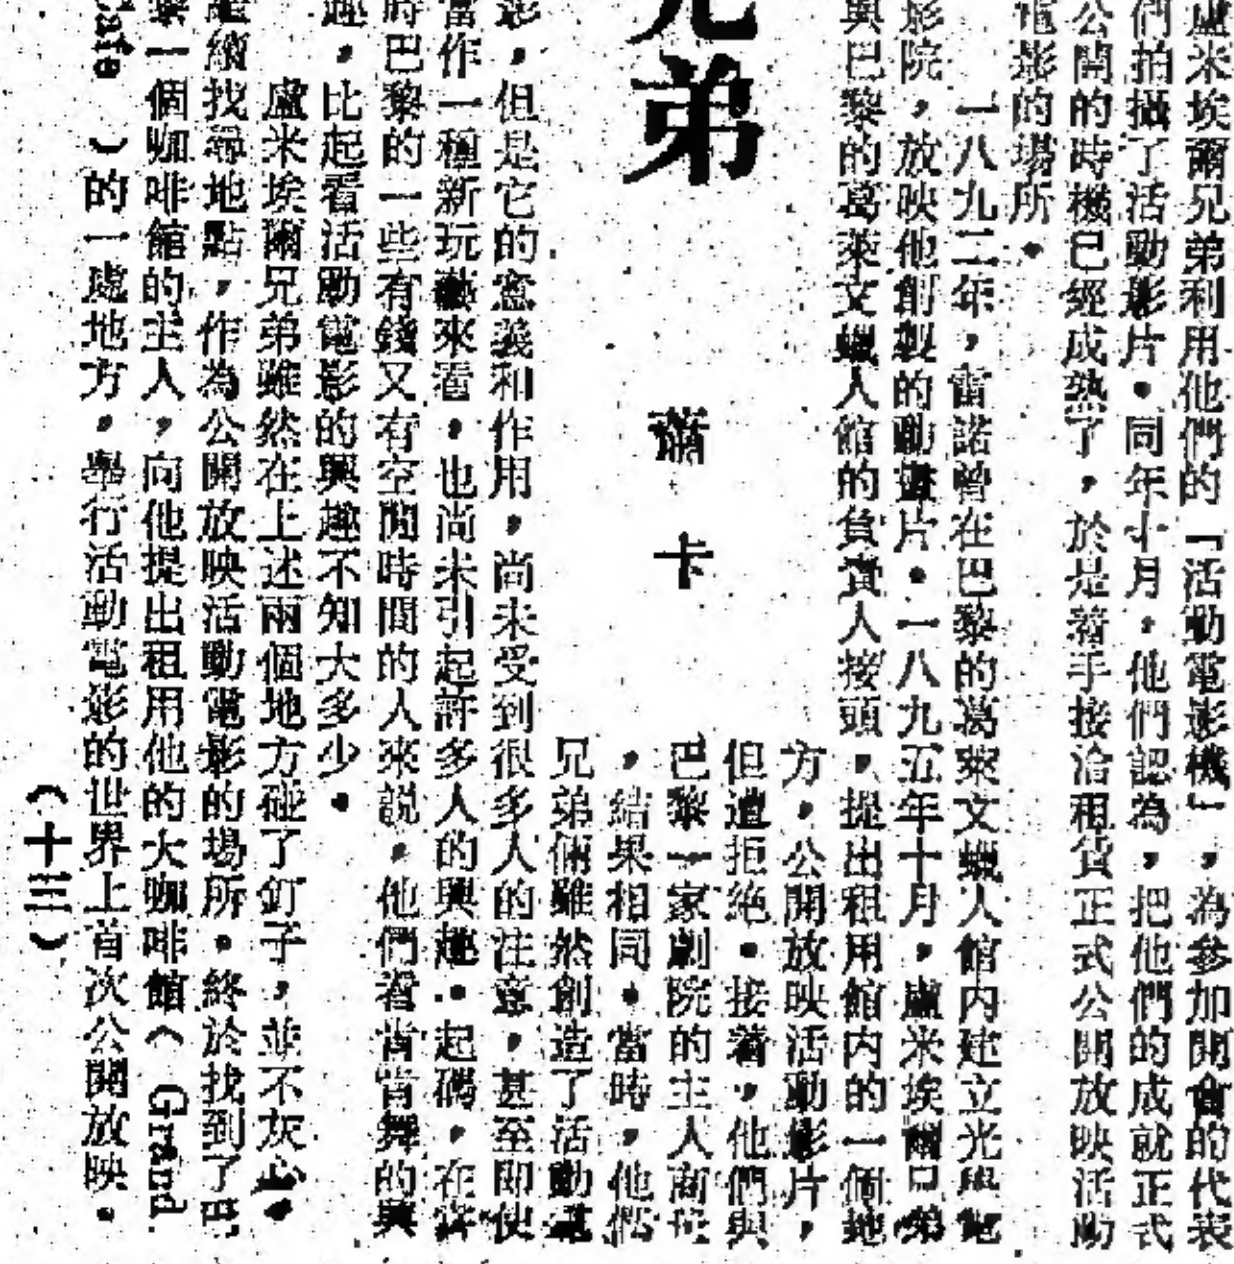 盧米埃爾兄弟利用他們的「活動電影機」，為參加開會的代表
們拍攝了活動影片。同年十月，他們認為，把他們的成就正式
公開的時機已經成熟了，於是着手接洽租賃正式公開放映活動
電影的場所。
一八九二年，雷諾曾在巴黎的葛萊文蠟人館内建立光學電
影院，放映他創製的動畫片。一八九五年十月，盧米埃爾兄弟
與巴黎的葛萊文蠟人館的負責人接頭，提出租用館内的一個地
方，公開放映活動影片，
但遭拒絶。接着，他們與
巴黎一家劇院的主人商
，結果相同。當時，他們
兄弟倆雖然創造了活動電
兄弟
蕭卡
影，但是它的意義和作用，尚未受到很多人的注意，甚至即使
當作一種新玩藝來看，也尚未引起許多人的興趣。起碼，在當
時巴黎的一些有錢又有空閒時間的人來說，他們看肯肯舞的興
趣，比起看活動電影的興趣不知大多少。
盧米埃爾兄弟雖然在上述兩個地方碰了釘子，並不灰心。
繼續找尋地點，作為公開放映活動電影的場所。終於找到了巴
黎一個咖啡館的主人，向他提出租用他的大咖啡館（Grand
Cafe）的一處地方，舉行活動電影的世界上首次公開放映。
（十三）